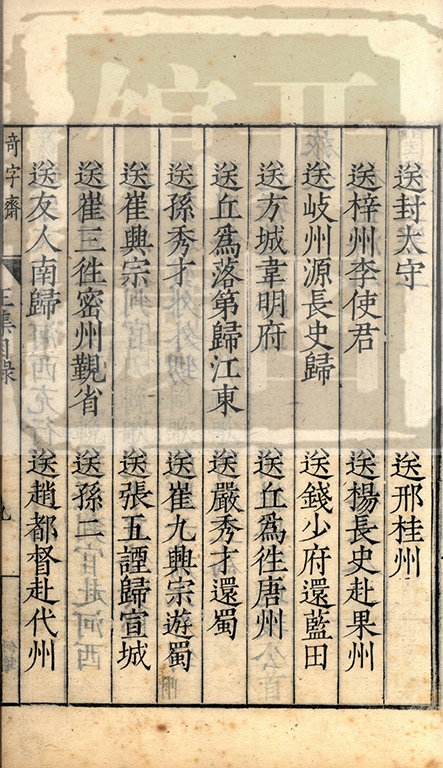 送封太守 送邢桂州
送梓州李使君 送楊長史赴果州
送岐州源長史歸 送錢少府還藍田
送方城韋明府 送丘為徃唐州
送丘為落第歸江東 送嚴秀才還蜀
送孫秀才 送崔九興宗遊蜀
送崔興宗 送張五諲歸宣城
送崔三徃密州覲省 送孫二
送友人南歸 送趙都督赴代州
奇字齋
王集目錄
九